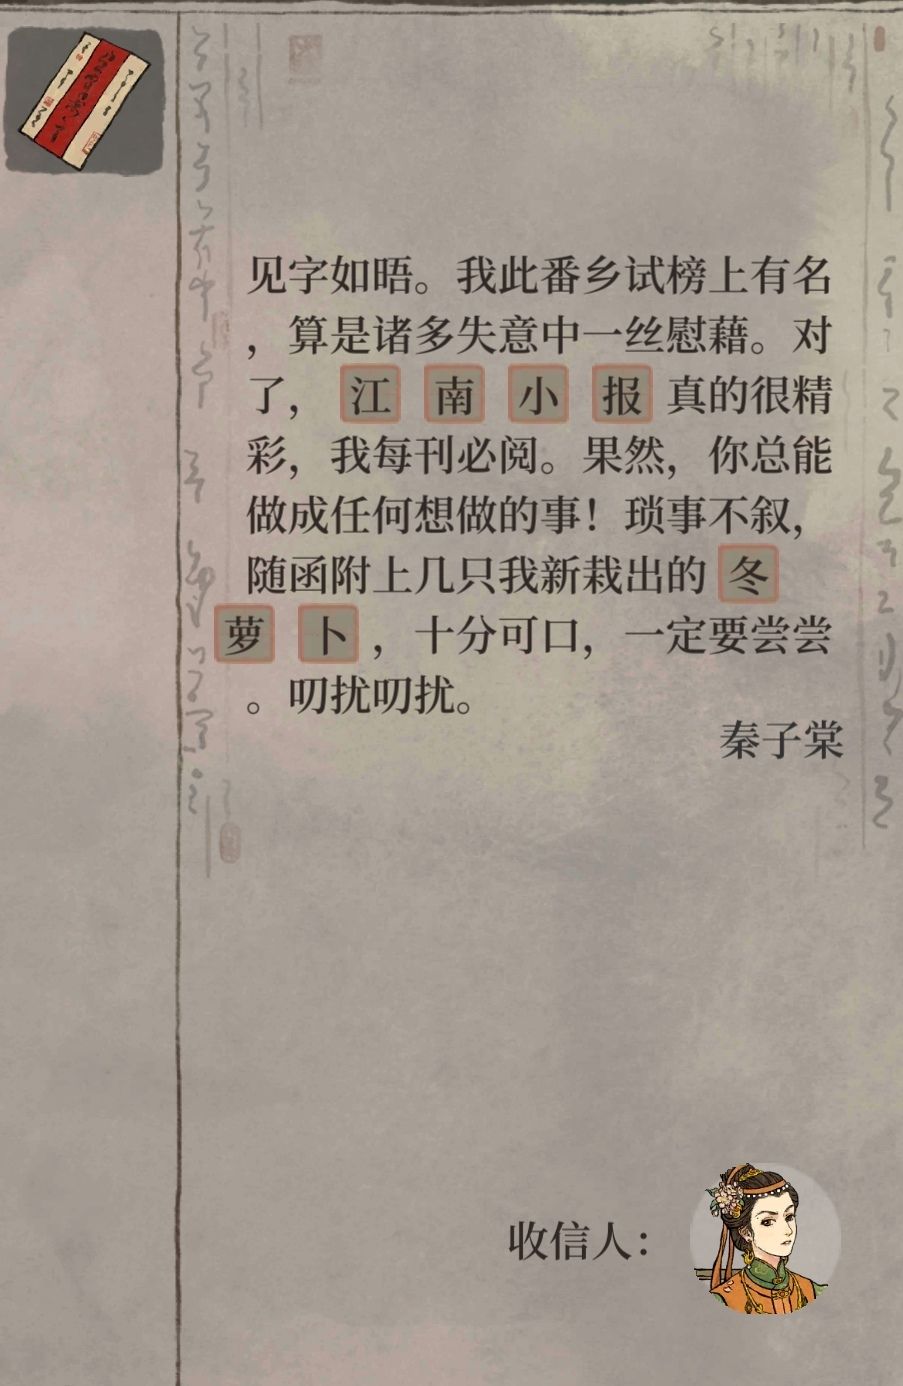 见字如晤。我此番乡试榜上有名
，算是诸多失意中一丝慰藉。对
了，江南小报真的很精
彩，我每刊必阅。果然，你总能
做成任何想做的事！琐事不叙，
随函附上几只我新栽出的冬
萝卜，十分可口，一定要尝尝
。叨扰叨扰。
秦子棠
收信人：